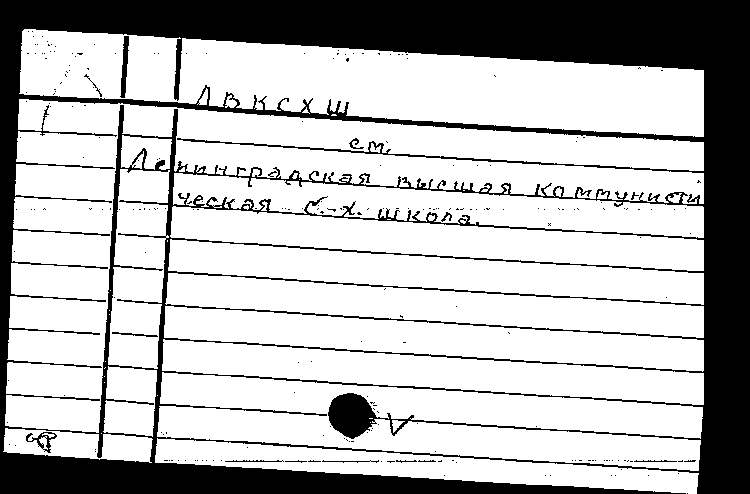 ЛВКСХШ
см.
Ленинградская высшая коммунисти
ческая с.-х. школа.